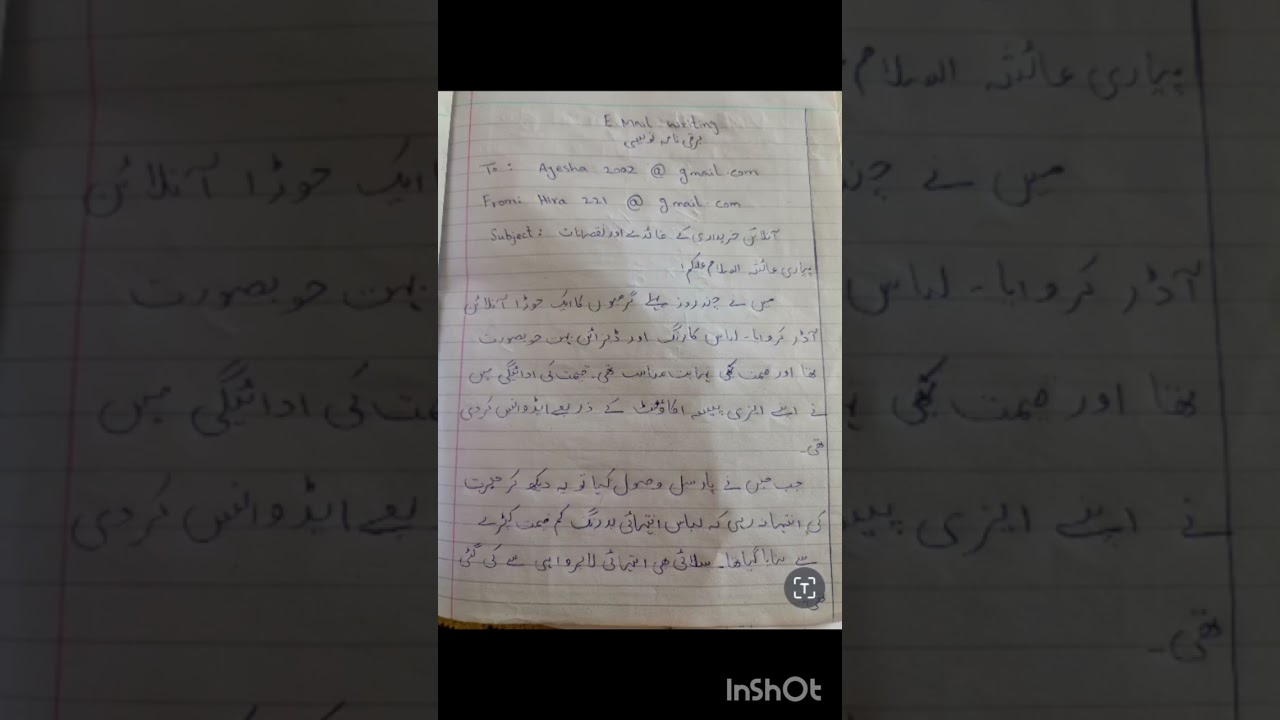 E Mail writing
برقی نامہ نویسی
To: Ayesha 2002 @ gmail.com
From: Hira 221 @ gmail.com
Subject: آنلائن خریداری کے فائدے اور نقصانات
پیاری عائشہ السلام علیکم!
میں نے چند روز پہلے گرمیوں کا ایک جوڑا آنلائن
آڈر کروایا۔ لباس کا رنگ اور ڈیزائن بہت خوبصورت
تھا اور قیمت بھی نہایت مناسب تھی۔ قیمت کی ادائیگی میں
نے اپنے ایزی پیسہ اکاؤنٹ کے ذریعے ایڈوانس کردی
تھی۔
جب میں نے پارسل وصول کیا تو یہ دیکھ کر حیرت
کی انتہا نہ رہی کہ لباس انتہائی بدرنگ کم قیمت کپڑے
سے بنایا گیا تھا۔ سلائی بھی انتہائی لاپرواہی سے کی گئی
تھی۔
InShOt